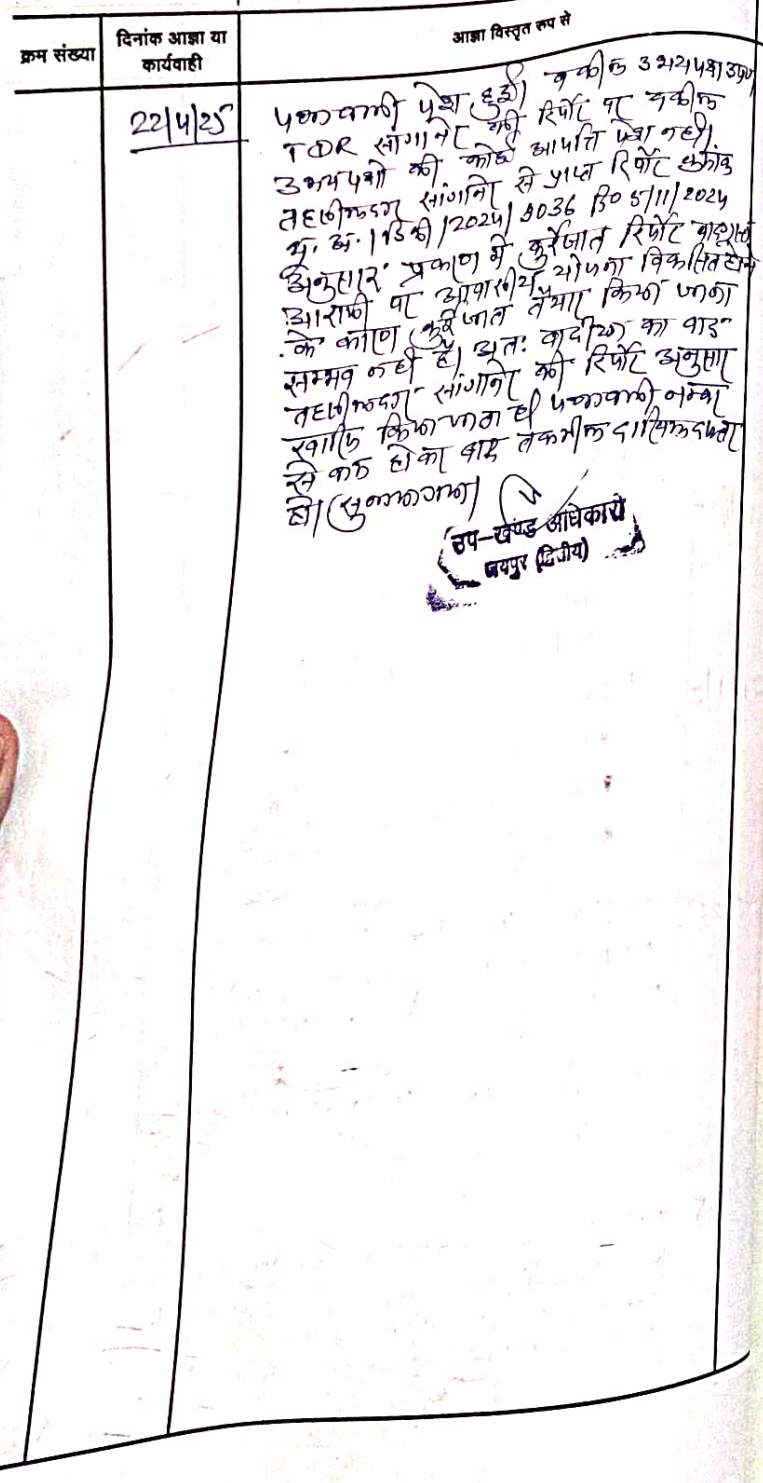 क्रम संख्या
दिनांक आज्ञा या
कार्यवाही
आज्ञा विस्तृत रूप से
22/4/25
पत्रावली पेश हुई। वकील उभयपक्ष उप०
TDR सांगानेर की रिपोर्ट पर वकील
उभयपक्षों की कोई आपत्ति पेश नहीं।
तहसीलदार सांगानेर से प्राप्त रिपोर्ट क्रमांक
भू. अ. / डिक्री /2024/ 5/11/2024
अनुसार प्रकरण में कुर्रेजात रिपोर्ट वादग्रस्त
आराजी पर आवासीय योजना विकसित होने
के कारण कुर्रेजात तैयार किया जाना
सम्भव नहीं है। अतः वादीया का वाद
तहसीलदार सांगानेर की रिपोर्ट अनुसार
खारिज किया जाता है। पत्रावली नम्बर
से कम होकर बाद तकमील दाखिल दफ्तर
हो।
उप-खण्ड अधिकारी
जयपुर (द्वितीय)